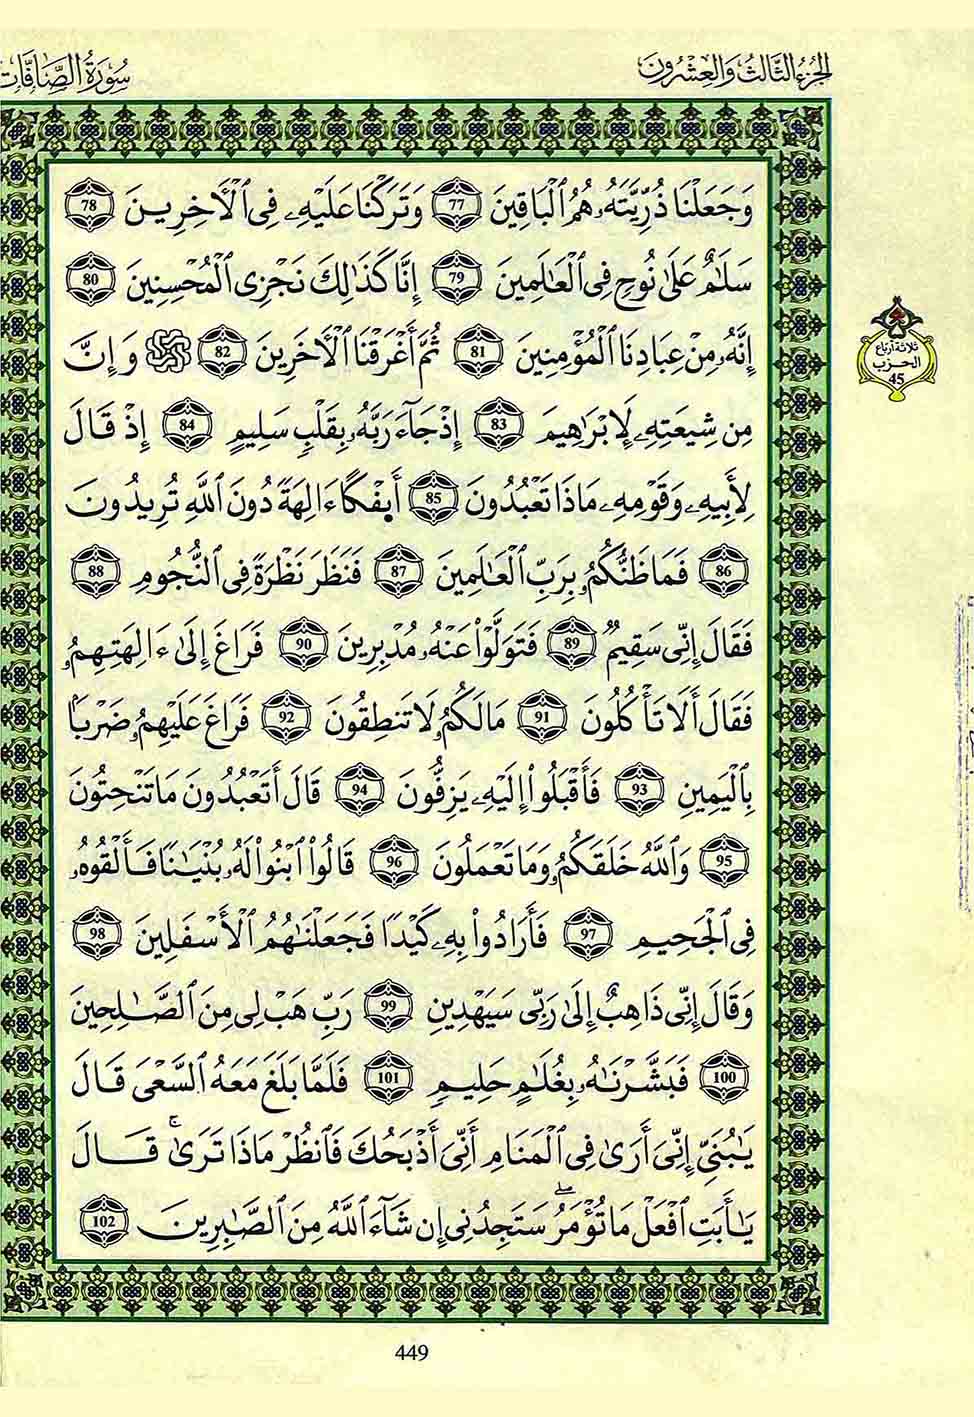 الجزء الثالث والعشرون
سورة الصافات
وَجَعَلْنَا ذُرِّيَّتَهُۥ هُمُ ٱلْبَاقِينَ 77 وَتَرَكْنَا عَلَيْهِۦ فِى ٱلْأَخِرِينَ 78
سَلَٰمٌ عَلَىٰ نُوحٍ فِى ٱلْعَٰلَمِينَ 79 إِنَّا كَذَٰلِكَ نَجْزِى ٱلْمُحْسِنِينَ 80
إِنَّهُۥ مِنْ عِبَادِنَا ٱلْمُؤْمِنِينَ 81 ثُمَّ أَغْرَقْنَا ٱلْأَخَرِينَ 82 وَإِنَّ
ثلاثة أرباع
الحزب
45
مِن شِيعَتِهِۦ لَإِبْرَٰهِيمَ 83 إِذْ جَآءَ رَبَّهُۥ بِقَلْبٍ سَلِيمٍ 84 إِذْ قَالَ
لِأَبِيهِۦ وَقَوْمِهِۦ مَاذَا تَعْبُدُونَ 85 أَئِفْكًا ءَالِهَةً دُونَ ٱللَّهِ تُرِيدُونَ
86 فَمَا ظَنُّكُمُۥ بِرَبِّ ٱلْعَٰلَمِينَ 87 فَنَظَرَ نَظْرَةً فِى ٱلنُّجُومِ 88
فَقَالَ إِنِّى سَقِيمٌ 89 فَتَوَلَّوْا۟ عَنْهُۥ مُدْبِرِينَ 90 فَرَاغَ إِلَىٰٓ ءَالِهَتِهِمُۥ
فَقَالَ أَلَا تَأْكُلُونَ 91 مَا لَكُمُۥ لَا تَنطِقُونَ 92 فَرَاغَ عَلَيْهِمُۥ ضَرْبًۢا
بِٱلْيَمِينِ 93 فَأَقْبَلُوٓا۟ إِلَيْهِۦ يَزِفُّونَ 94 قَالَ أَتَعْبُدُونَ مَا تَنْحِتُونَ
95 وَٱللَّهُ خَلَقَكُمُۥ وَمَا تَعْمَلُونَ 96 قَالُوا۟ ٱبْنُوا۟ لَهُۥ بُنْيَٰنًا فَأَلْقُوهُۥ
فِى ٱلْجَحِيمِ 97 فَأَرَادُوا۟ بِهِۦ كَيْدًا فَجَعَلْنَٰهُمُ ٱلْأَسْفَلِينَ 98
وَقَالَ إِنِّى ذَاهِبٌ إِلَىٰ رَبِّى سَيَهْدِينِ 99 رَبِّ هَبْ لِى مِنَ ٱلصَّٰلِحِينَ
100 فَبَشَّرْنَٰهُۥ بِغُلَٰمٍ حَلِيمٍ 101 فَلَمَّا بَلَغَ مَعَهُ ٱلسَّعْىَ قَالَ
يَٰبُنَىِّ إِنِّىَ أَرَىٰ فِى ٱلْمَنَامِ أَنِّىَ أَذْبَحُكَ فَٱنظُرْ مَاذَا تَرَىٰ ۚ قَالَ
يَٰٓأَبَتِ ٱفْعَلْ مَا تُؤْمَرُ ۖ سَتَجِدُنِى إِن شَآءَ ٱللَّهُ مِنَ ٱلصَّٰبِرِينَ 102
449